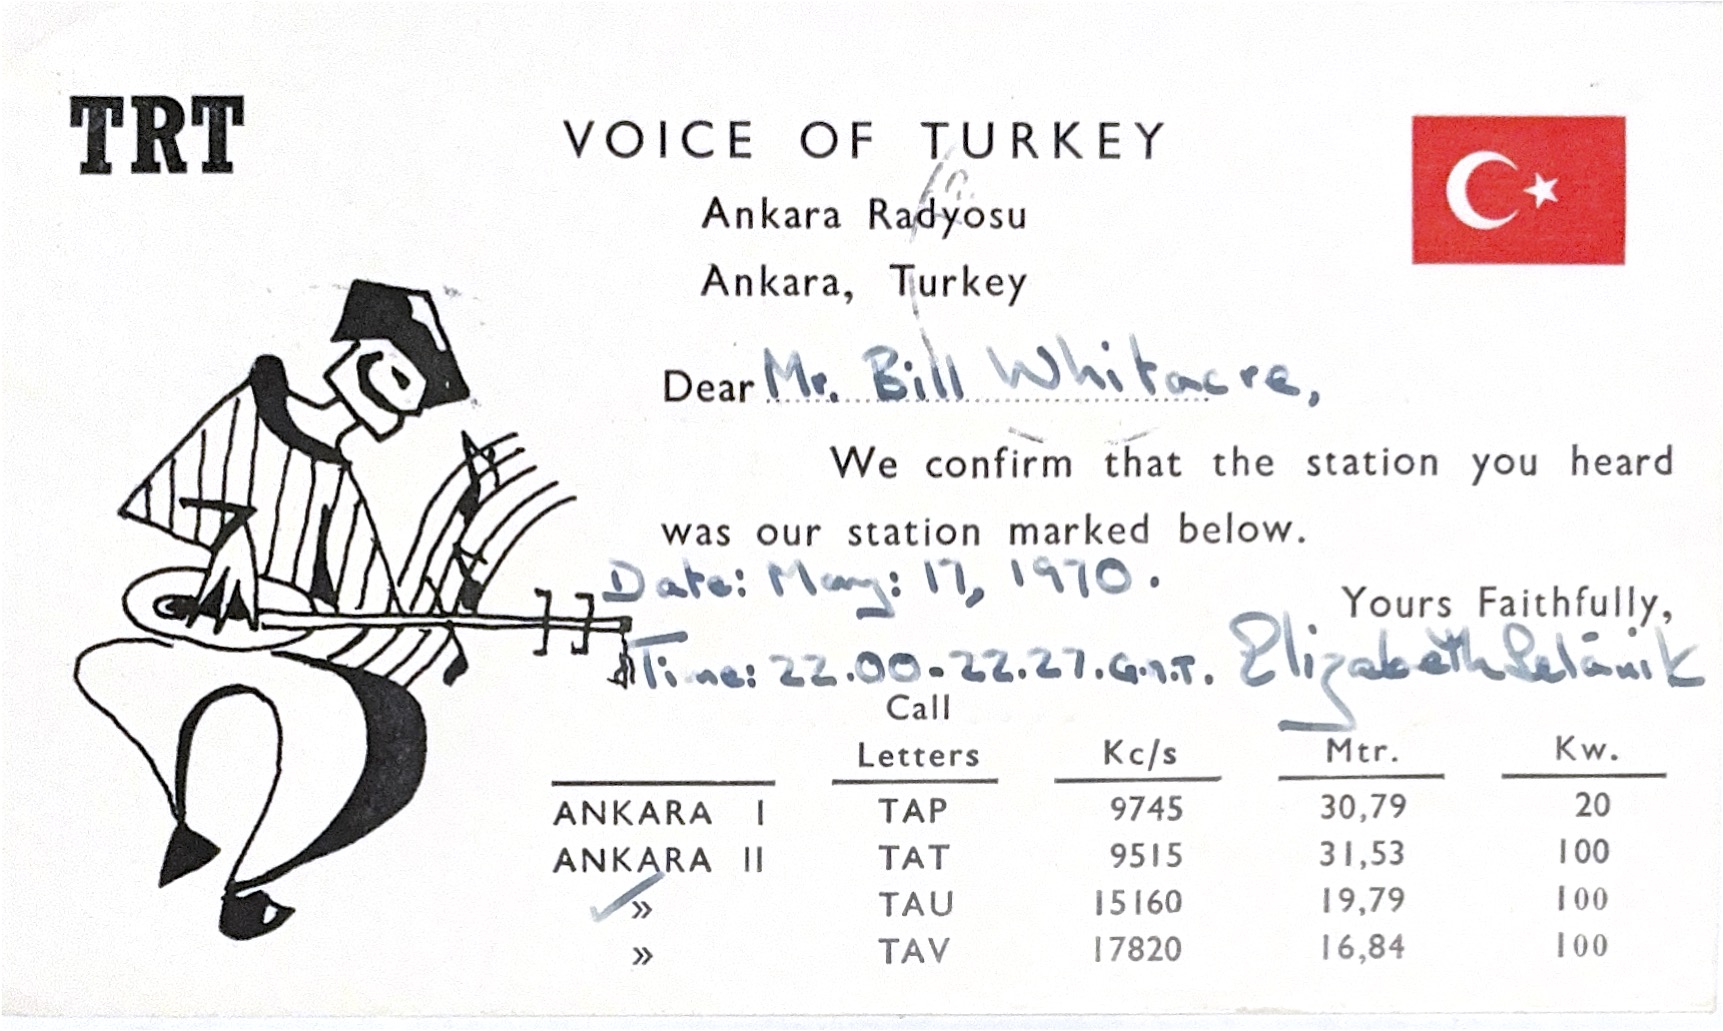 TRT
VOICE OF TURKEY
Ankara Radyosu
Ankara, Turkey
Dear Mr. Bill Whitacre,
We confirm that the station you heard
was our station marked below.
Date: May: 17, 1970.
Yours Faithfully,
Time: 22.00-22.27.G.M.T. Elizabeth Selânik
Call
Letters Kc/s Mtr. Kw.
ANKARA I TAP 9745 30,79 20
ANKARA II TAT 9515 31,53 100
✓ » TAU 15160 19,79 100
» TAV 17820 16,84 100